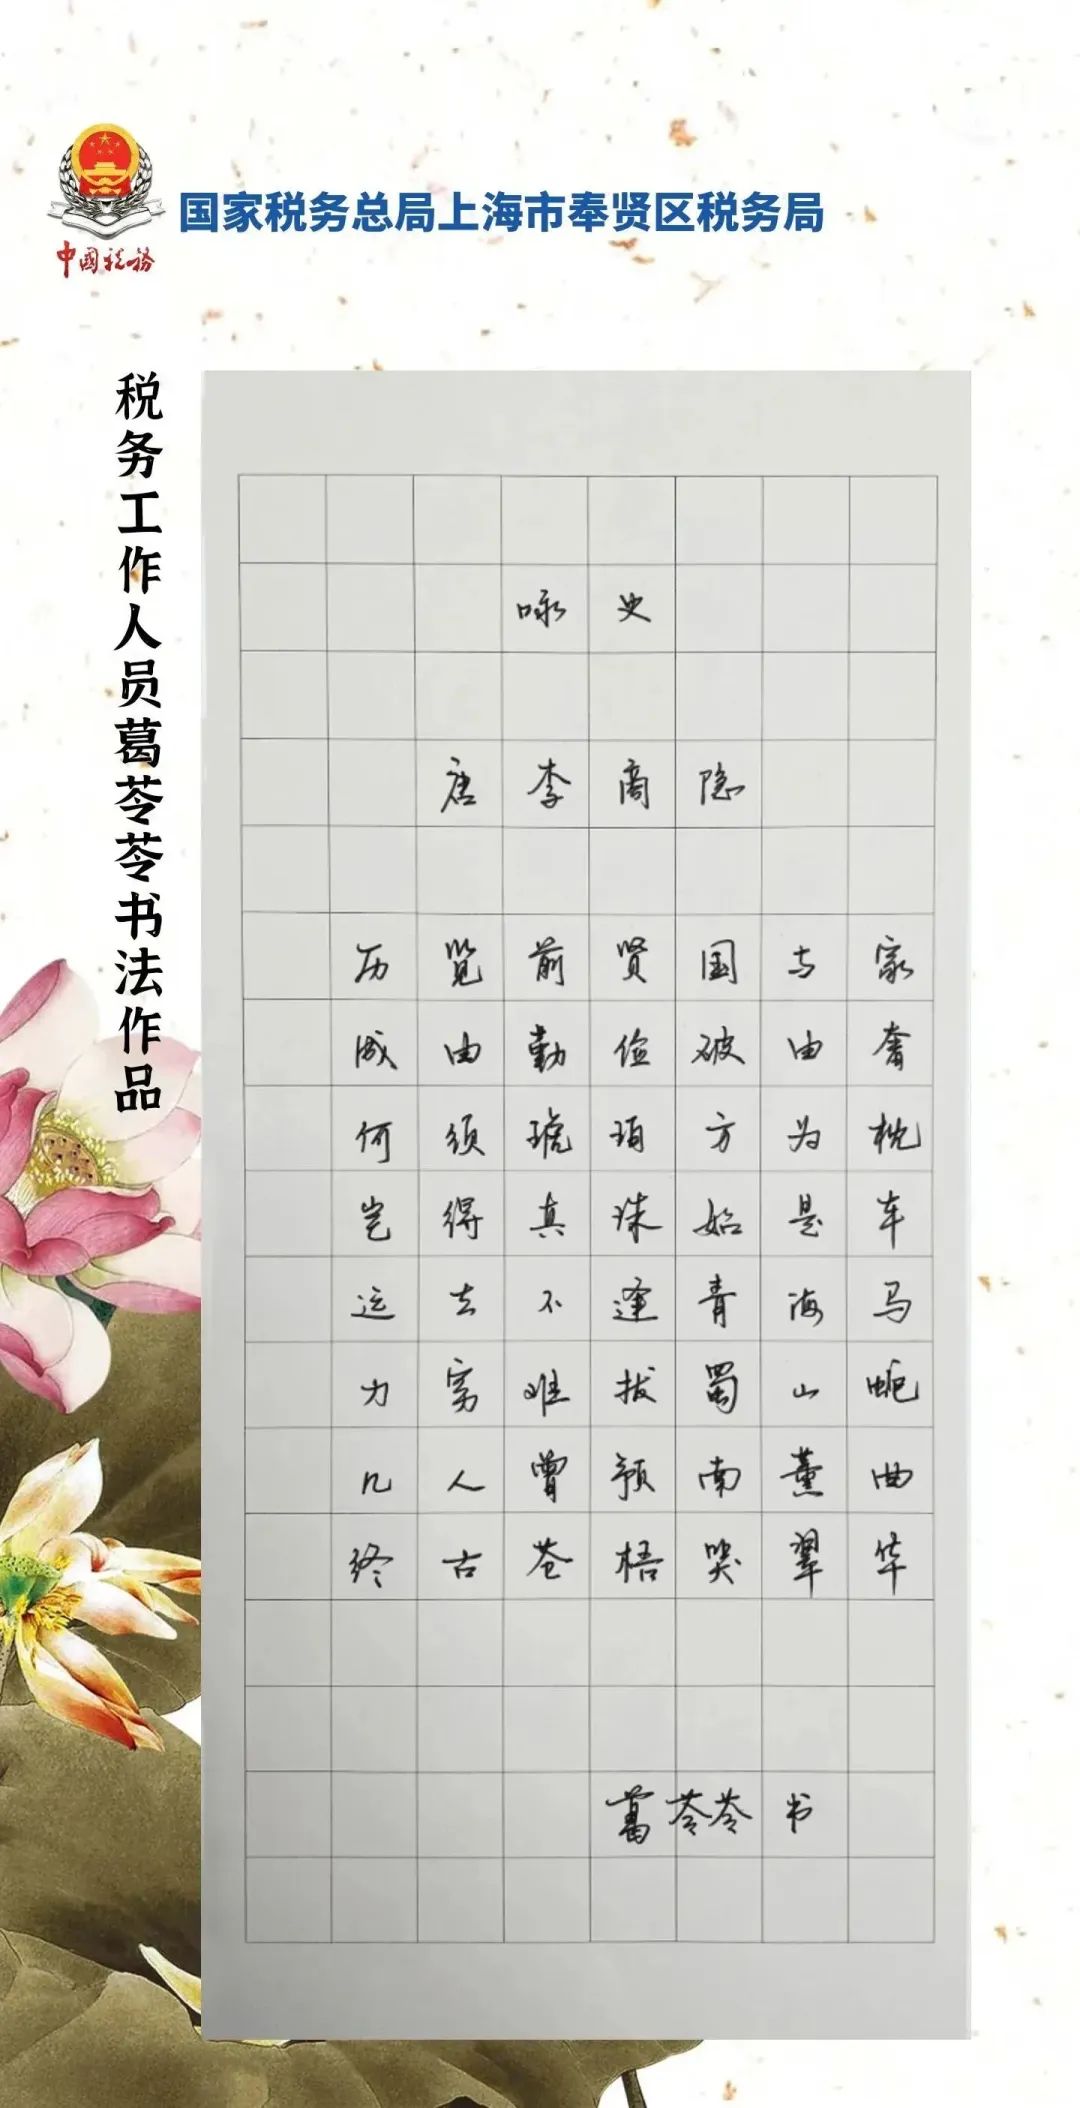 国家税务总局上海市奉贤区税务局
中国税务
税务工作人员葛苓苓书法作品
咏史
唐李商隐
历览前贤国与家
成由勤俭破由奢
何须琥珀方为枕
岂得真珠始是车
运去不逢青海马
力穷难拔蜀山蛇
几人曾预南薰曲
终古苍梧哭翠华
葛苓苓书